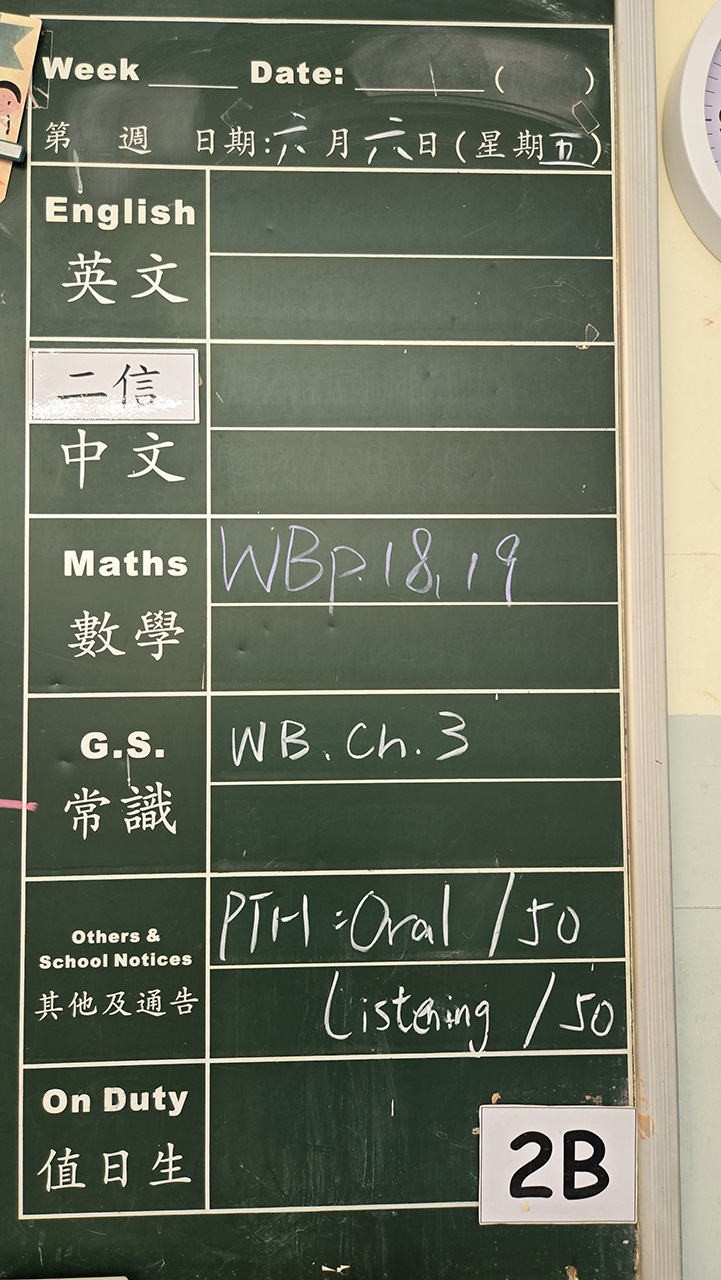 Week ______ Date: __________ (      )
第 週 日期:六月六日(星期五)
English
英文
二信
中文
Maths WBp.18,19
數學
G.S. WB. Ch. 3
常識
Others & PTH:Oral /50
School Notices
其他及通告 Listening /50
On Duty
值日生
2B